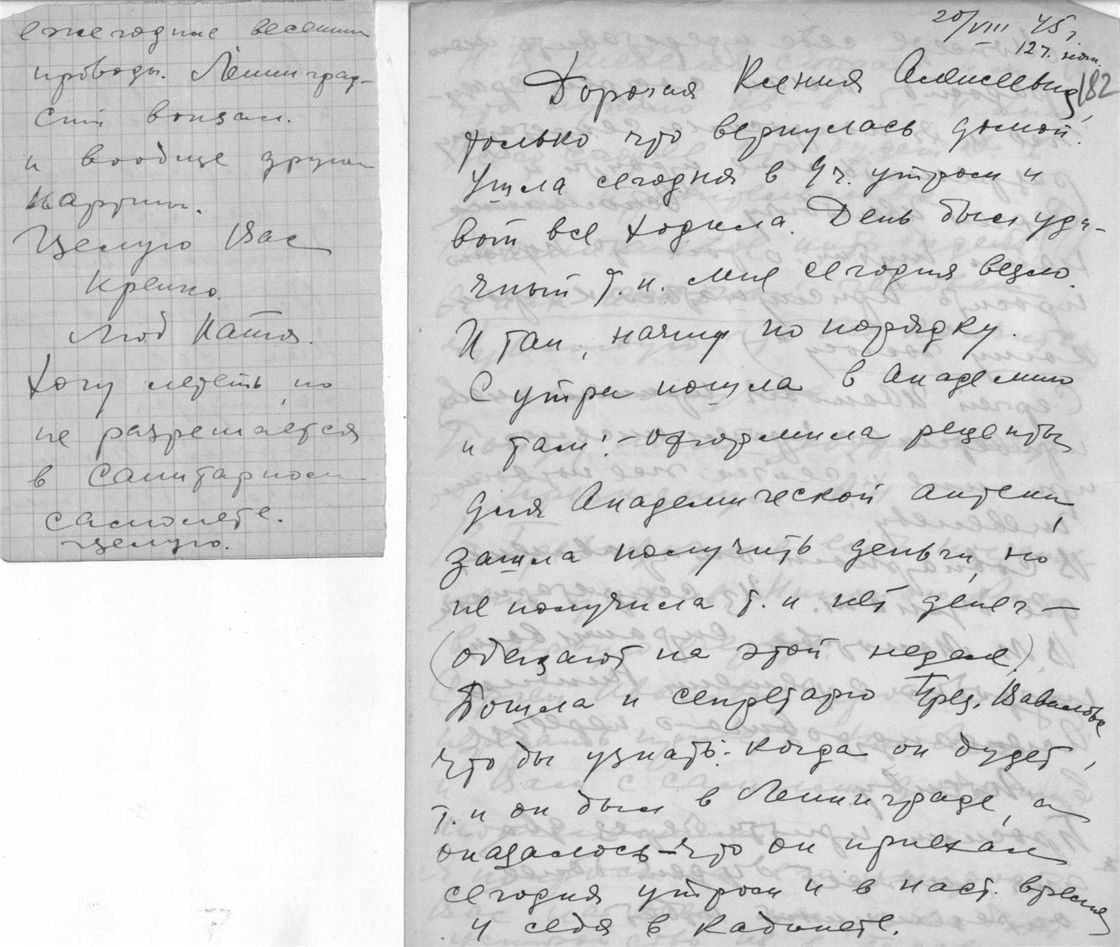 ежегодние весенни
проводы. Ленинград-
ский вокзал.
и вообще другие
картины.
Целую Вас
крепко.
Люб Катя.
Хочу лететь, но
не разрешается
в санитарном
самолете.
целую.
20/VIII 45 г.
12 ч. ноч.
182
Дорогая Ксения Алексеевна,
только что вернулась домой.
Ушла сегодня в 9 ч. утром и
вот все ходила. День был уда-
чный т.к. мне сегодня везло.
И так, начну по порядку.
С утра пошла в Академию
и там: - оформила рецепты
для Академической аптеки,
зашла получить деньги, но
не получила т.к. нет денег —
(обещают на этой неделе).
Пошла к секретарю През. Вавилова
что бы узнать: когда он будет,
т.к он был в Ленинграде, а
оказалось - что он приехал
сегодня утром и в наст. время
у себя в кабинете.